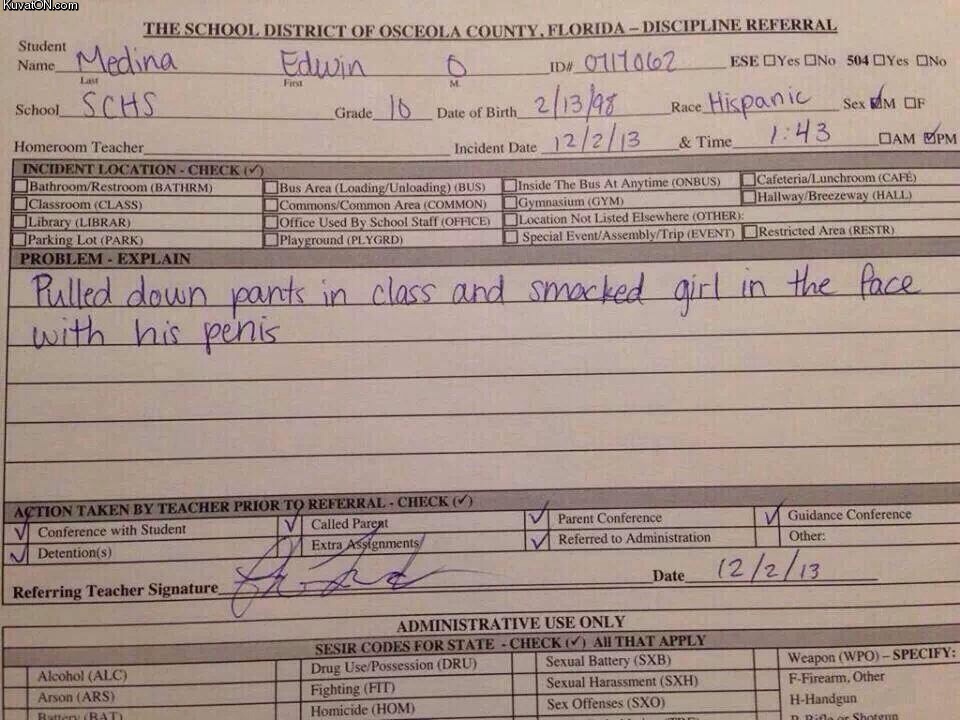 KuvatON.com
THE SCHOOL DISTRICT OF OSCEOLA COUNTY, FLORIDA – DISCIPLINE REFERRAL
Student
Name Medina Edwin O ID# 0717062 ESE Yes No 504 Yes No
Last First M.
School SCHS Grade 10 Date of Birth 2/13/98 Race Hispanic Sex M F
Homeroom Teacher Incident Date 12/2/13 & Time 1:43 AM PM
INCIDENT LOCATION - CHECK (✓)
Bathroom/Restroom (BATHRM) Bus Area (Loading/Unloading) (BUS) Inside The Bus At Anytime (ONBUS) Cafeteria/Lunchroom (CAFÉ)
Classroom (CLASS) Commons/Common Area (COMMON) Gymnasium (GYM) Hallway/Breezeway (HALL)
Library (LIBRAR) Office Used By School Staff (OFFICE) Location Not Listed Elsewhere (OTHER):
Parking Lot (PARK) Playground (PLYGRD) Special Event/Assembly/Trip (EVENT) Restricted Area (RESTR)
PROBLEM - EXPLAIN
Pulled down pants in class and smacked girl in the face
with his penis
ACTION TAKEN BY TEACHER PRIOR TO REFERRAL - CHECK (✓)
Conference with Student Called Parent Parent Conference Guidance Conference
Detention(s) Extra Assignments Referred to Administration Other:
Referring Teacher Signature Date 12/2/13
ADMINISTRATIVE USE ONLY
SESIR CODES FOR STATE - CHECK (✓) All THAT APPLY
Alcohol (ALC) Drug Use/Possession (DRU) Sexual Battery (SXB) Weapon (WPO) – SPECIFY:
Arson (ARS) Fighting (FIT) Sexual Harassment (SXH) F-Firearm, Other
Battery (BAT) Homicide (HOM) Sex Offenses (SXO) H-Handgun
R-Rifle or Shotgun